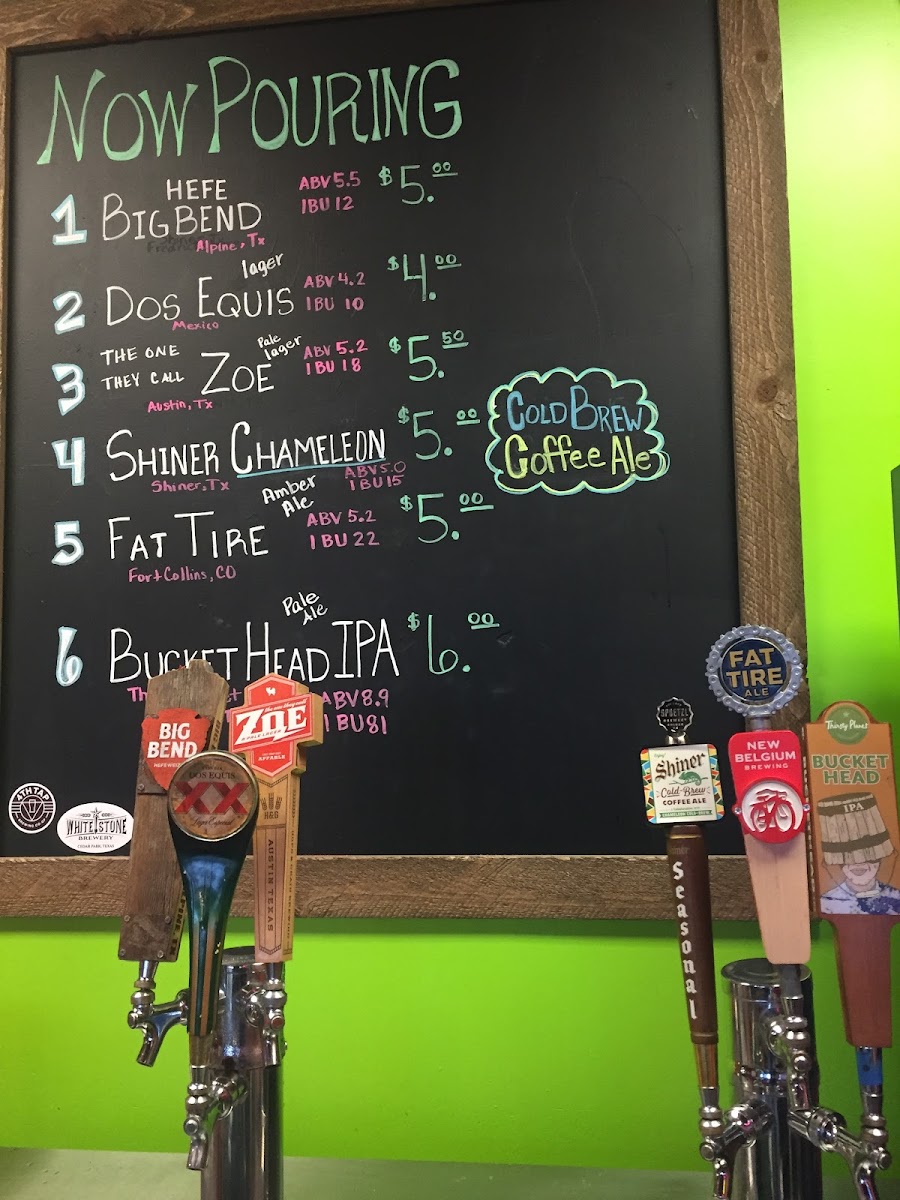 NOW POURING
1 HEFE BIG BEND ABV 5.5 IBU 12 $5.00
Alpine, Tx
2 DOS EQUIS lager ABV 4.2 IBU 10 $4.00
Mexico
3 THE ONE THEY CALL ZOE Pale lager ABV 5.2 IBU 18 $5.50
Austin, Tx
4 SHINER CHAMELEON $5.00
Shiner, Tx ABV 5.0 IBU 15
COLD BREW
Coffee Ale
5 FAT TIRE Amber Ale ABV 5.2 IBU 22 $5.00
Fort Collins, CO
6 BUCKET HEAD IPA Pale Ale $6.00
ABV 8.9
IBU 81
BIG
BEND
DOS EQUIS
XX
ZOE
PALE LAGER
AFFABLE
H&G
AUSTIN TEXAS
4TH TAP
WHITESTONE
BREWERY
CEDAR PARK, TEXAS
SPOETZL
BREWERY
Shiner
Cold-Brew
COFFEE ALE
Seasonal
FAT
TIRE
ALE
NEW
BELGIUM
BREWING
Thirsty Planet
BUCKET
HEAD
IPA